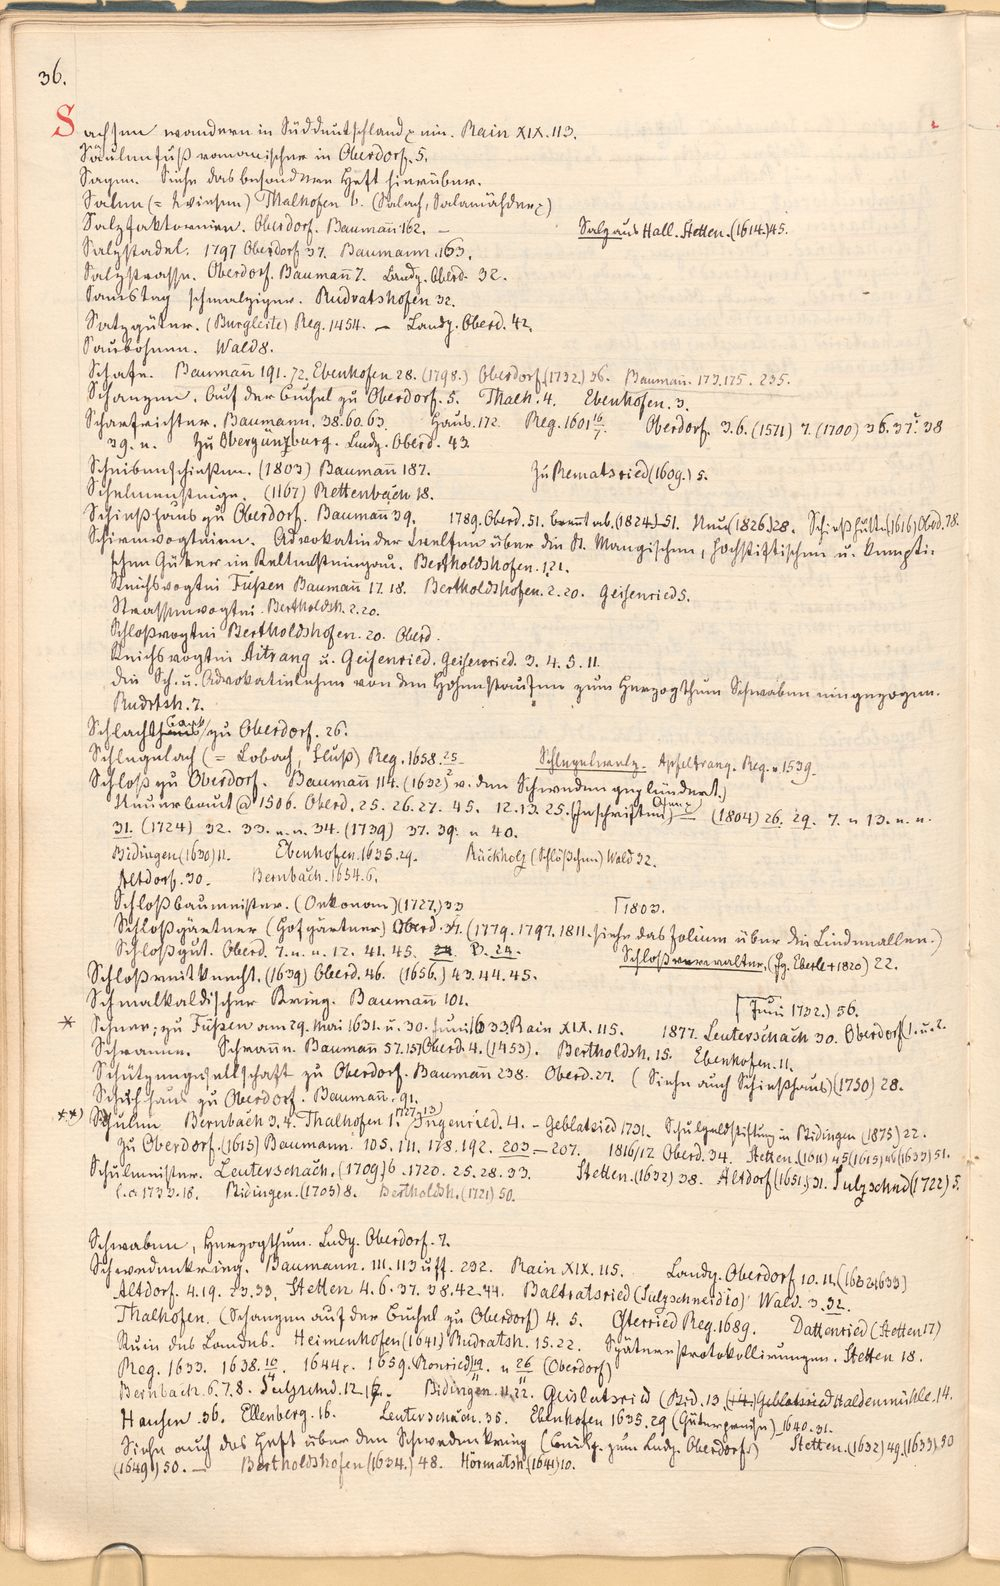 36.
Sachsen wandern in Süddeutschland ein. Rain XIX. 113.
Säulenfuß romanischer in Oberdorf. 5.
Sagen. Siehe das besondere Heft hierüber.
Salen (= Weiden) Thalhofen 6. (Salach, Salamähder)
Salzfaktoreien. Oberdorf. Baumañ 162. — Salz aus Hall. Stetten. (1614.) 45.
Salzstadel. 1797 Oberdorf 37. Baumann. 163.
Salzstrasse. Oberdorf. Baumañ 7. Landg. Oberd. 32.
Samstag schmalziger. Rudratshofen 32.
Satzgüter. (Burgleite) Reg. 1454. — Landg. Oberd. 42.
Saubohnen. Wald 8.
Schafe. Baumañ 191. 72. Ebenhofen 28. (1798.) Oberdorf (1732.) 36. Baumañ. 173. 175. 235.
Schanzen. Auf der Buchel zu Oberdorf. 5. Thalh. 4. Ebenhofen. 3.
Scharfrichter. Baumann. 38. 60. 63. Haus. 172. Reg. 1601 16/7. Oberdorf. 3. 6. (1571) 7. (1700) 36. 37. 38
39. u. zu Obergünzburg. Landg. Oberd. 43.
Scheibenschießen. (1803) Baumañ 187. Zu Rematsried (1609.) 5.
Schelmensteige. (1167) Rettenbach 18.
Schießhaus zu Oberdorf. Baumañ 39. 1789. Oberd. 51. brennt ab. (1824.) 51. Neu (1826) 28. Schießhütte (1616) Obd. 78.
Schirmvogteien. Advokatie der Welfen über die St. Mangischen, hochstiftischen u. kempti-
schen Güter im Keltensteingau. Bertholdshofen. 1. 21.
Reichsvogtei Füßen Baumañ 17. 18. Bertholdshofen. 2. 20. Geisenried 5.
Strassenvogtei. Bertholdsh. 2. 20.
Schloßvogtei Bertholdshofen. 20. Oberd.
Reichsvogtei Aitrang u. Geisenried. Geisenried. 3. 4. 5. 11.
die Sch. u. Advokatielehen von den Hohenstaufen zum Herzogthum Schwaben eingezogen.
Rudrtsh. 7.
Schlachthaus zu Oberdorf. 26.
Schlegelach (= Lobach, Fluß) Reg. 1658. 25/2 Schlegelwalz. Apfeltrang. Reg. v. 1539.
Schloß zu Oberdorf. Baumañ 114. (1632) v. den Schweden geplündert.)
Neuerbaut @ 1506. Oberd. 25. 26. 27. 45. 12. 13. 25. (Inschriften) (1804) 26. 29. 7. u 13. u. u.
31. (1724) 32. 33. u. u. 34. (1739) 37. 39. u 40.
Bidingen (1630) 11. Ebenhofen. 1635. 29. Rückholz (Schlößchen) Wald 32.
Altdorf. 30. Bernbach. 1654. 6.
Schloßbaumeister. (Oekonom) (1727.) 33 1803.
Schloßgärtner (Hofgärtner) Oberd. 34. (1779. 1797. 1811. siehe das Folium über die Lindenallee.)
Schloßgut. Oberd. 7. u. u. 12. 41. 45. B. 24. Schloßverwalter, (Jg. Eberle + 1820) 22.
Schloßreitknecht. (1639) Oberd. 46. (1656.) 43. 44. 45.
Schmalkaldischer Krieg. Baumañ 101. Juni 1732.) 56.
* Schnee; zu Füßen am 29. Mai 1631. u. 30. Juni 1633. Rain XIX. 115. 1877. Leuterschach 30. Oberdorf 1. u. 2.
Schranne. Schrañe. Baumañ 57. 157 Oberd. 4. (1453). Bertholdsh. 15. Ebenhofen. 11.
Schützengesellschaft zu Oberdorf. Baumañ 238. Oberd. 27. (Siehe auch Schießhaus) (1750) 28.
Schulhaus zu Oberdorf. Baumañ. 91.
**) Schulen Bernbach 3. 4. Thalhofen 1. Ingenried. 4. — Geblatsried 1731. Schulgeldstiftung in Bidingen (1875) 22.
zu Oberdorf. (1615) Baumann. 105. 111. 178. 192. 203 — 207. 1816/17 Oberd. 34. Stetten. (1611) 45 (1615) 46 (1633) 51.
Schulmeister. Leuterschach. (1709) 6. 1720. 25. 28. 33. Stetten. (1632) 38. Altdorf (1651.) 31. Sulzschnd (1722) 5.
1733. 18. Bidingen. (1705) 8. Bertholdsh. (1721) 50.
Schwaben, Herzogthum. Landg. Oberdorf. 7.
Schwedenkrieg. Baumann. 111. 113 u ff. 232. Rain XIX. 115. Landg. Oberdorf 10. 11. (1632 1633)
Altdorf. 4. 19. 23. 33. Stetten 4. 6. 37. 38. 42. 44. Baltratsried (Sulzschneid 10) Wald. 3. 32.
Thalhofen. (Schanzen auf der Buchel zu Oberdorf) 4. 5. Osterried Reg. 1689. Dattenried (Stetten 17)
Ruin des Landes. Heimenhofen (1641) Rudratsh. 15. 22. Spätere Protokollirungen. Stetten 18.
Reg. 1633. 1638. 10/4. 1644. 1659. Ronried 19/11 u 26/11 (Oberdorf)
Bernbach. 6. 7. 8. Sulzschnd. 12. 17. Bidingen. 11. 22. Geislatsried (Bid. 13. (14.) Geblatsried Haldenmühle. 14.
Hausen. 36. Ellenberg. 16. Leuterschach. 35. Ebenhofen 1635. 29 (Güterpreise) 1640. 31.
Siehe auch das Heft über den Schwedenkrieg (Beilg. zum Landg. Oberdorf) Stetten. (1632) 49. (1633) 50
(1649) 50. — Bertholdshofen (1634.) 48. Hörmatsh (1641) 10.